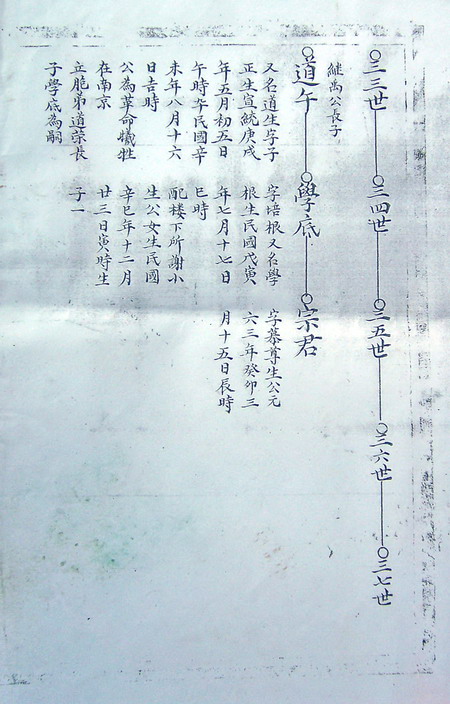 三三世
三四世
三五世
三六世
三七世
継禹公長子
道午
又名道生字子
正生宣統庚戌
年五月初五日
午時卒民國辛
未年八月十六
日吉時
公為革命犧牲
在南京
立胞弟道榮長
子學底為嗣
學底
字培根又名學
根生民國戊寅
年七月十七日
巳時
配楼下所謝小
生公女生民國
辛巳年十二月
廿三日寅時生
子一
宗君
字慕尊生公元
六三年癸卯三
月十五日辰時